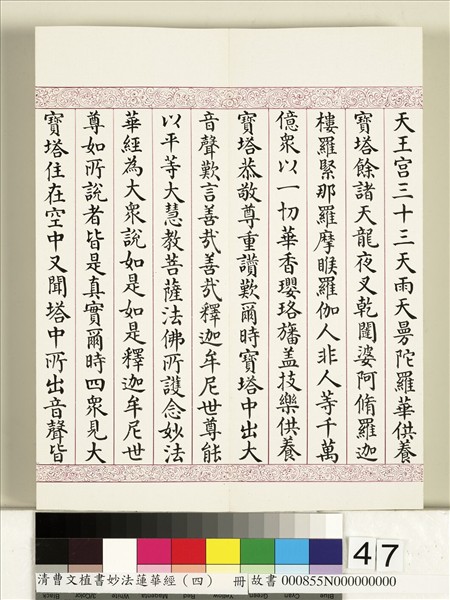 天王宮三十三天雨天曼陀羅華供養
寶塔餘諸天龍夜叉乾闥婆阿脩羅迦
樓羅緊那羅摩睺羅伽人非人等千萬
億眾以一切華香瓔珞旛盖技樂供養
寶塔恭敬尊重讚歎爾時寶塔中出大
音聲歎言善哉善哉釋迦牟尼世尊能
以平等大慧教菩薩法佛所護念妙法
華經為大眾說如是如是釋迦牟尼世
尊如所說者皆是真實爾時四眾見大
寶塔住在空中又聞塔中所出音聲皆
47
清曹文植書妙法蓮華經（四） 冊 故書 000855N000000000